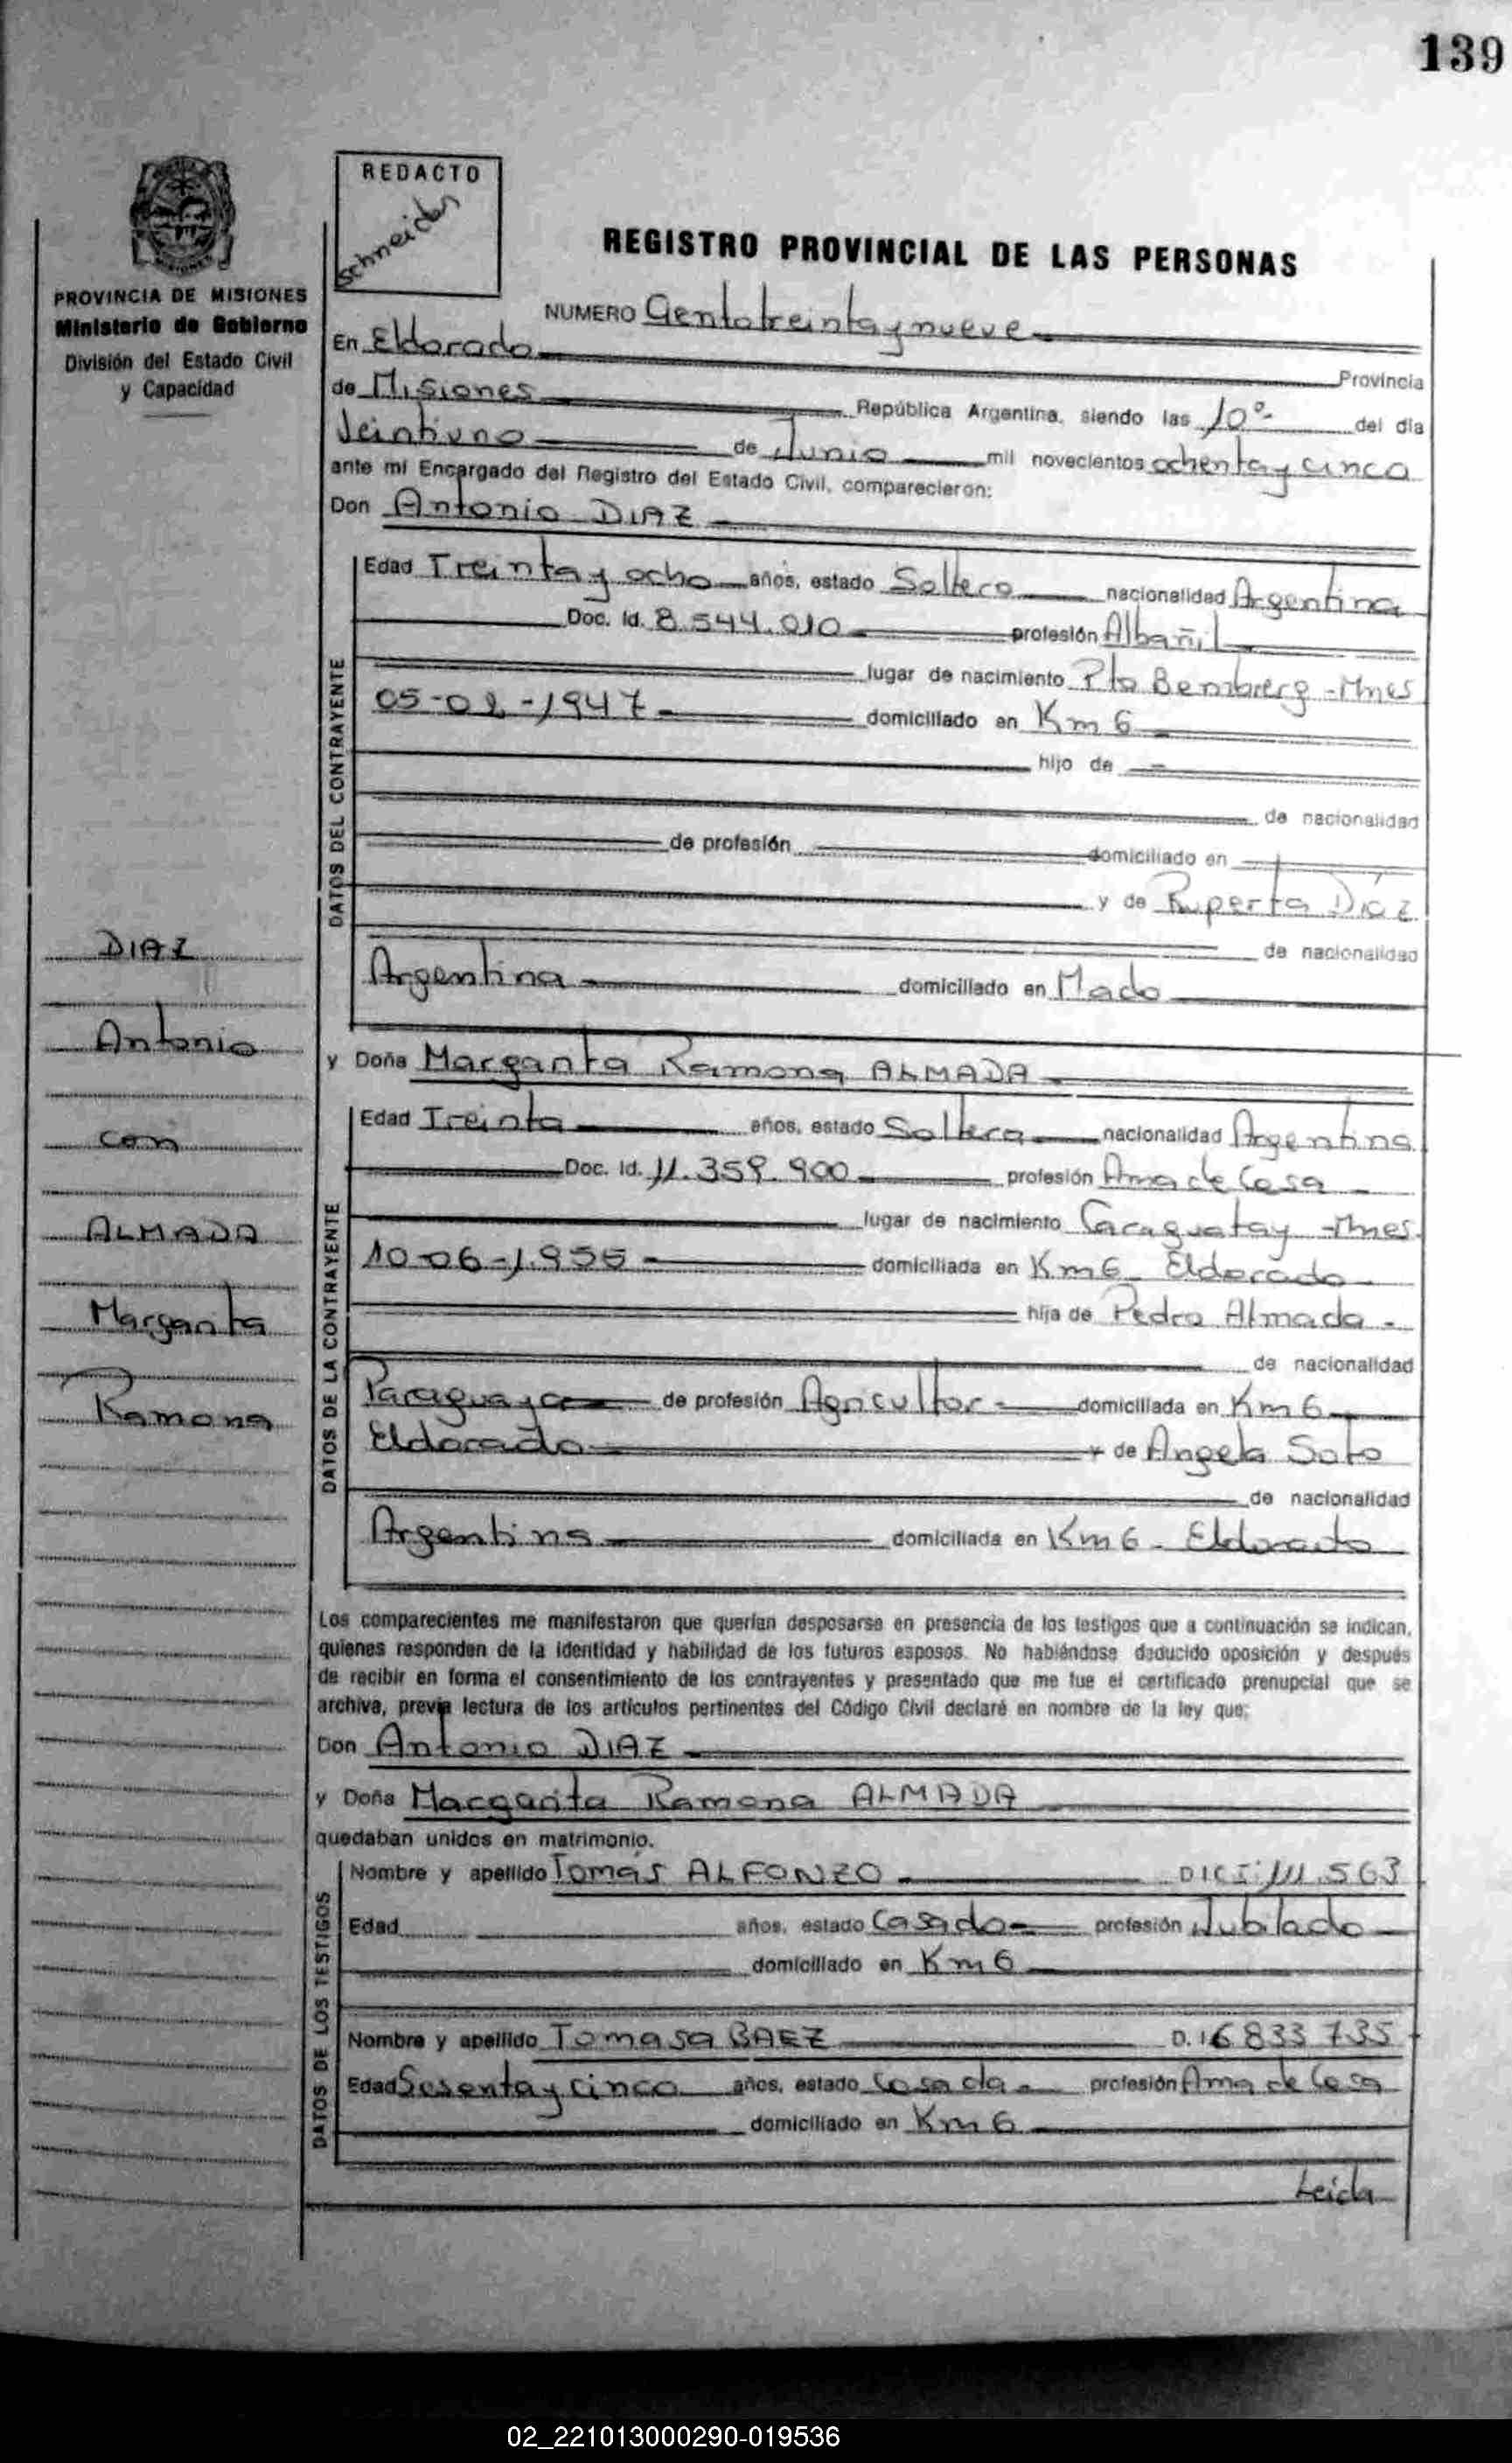 139
REDACTO
Schneider
PROVINCIA DE MISIONES
Ministerio de Gobierno
División del Estado Civil
y Capacidad
REGISTRO PROVINCIAL DE LAS PERSONAS
NUMERO Cientotreinta y nueve
En Eldorado Provincia
de Misiones República Argentina, siendo las 10º del día
Veintiuno de Junio mil novecientos ochenta y cinco
ante mi Encargado del Registro del Estado Civil, comparecieron:
Don Antonio DIAZ
DATOS DEL CONTRAYENTE
Edad Treinta y ocho años, estado Soltero nacionalidad Argentina
Doc. Id. 8.544.010 profesión Albañil
lugar de nacimiento Pto Bemberg - Mnes
05-02-1947 domiciliado en Km 6
hijo de
de nacionalidad
de profesión domiciliado en
y de Ruperta Díaz
de nacionalidad
Argentina domiciliado en Mado
y Doña Margarita Ramona ALMADA
DATOS DE LA CONTRAYENTE
Edad Treinta años, estado Soltera nacionalidad Argentina
Doc. Id. 11.359.900 profesión Ama de Casa
lugar de nacimiento Caraguatay - Mnes
10-06-1.955 domiciliada en Km 6 Eldorado
hija de Pedro Almada
de nacionalidad
Paraguaya de profesión Agricultor domiciliada en Km 6
Eldorado y de Angela Soto
de nacionalidad
Argentina domiciliada en Km 6 - Eldorado
Los comparecientes me manifestaron que querían desposarse en presencia de los testigos que a continuación se indican,
quienes responden de la identidad y habilidad de los futuros esposos. No habiéndose deducido oposición y después
de recibir en forma el consentimiento de los contrayentes y presentado que me fue el certificado prenupcial que se
archiva, previa lectura de los artículos pertinentes del Código Civil declaré en nombre de la ley que:
Don Antonio DIAZ
y Doña Margarita Ramona ALMADA
quedaban unidos en matrimonio.
DATOS DE LOS TESTIGOS
Nombre y apellido Tomás ALFONZO
Edad años, estado Casado profesión Jubilado
domiciliado en Km 6
Nombre y apellido Tomasa BAEZ D.I 6.833.735
Edad Sesenta y cinco años, estado Casada profesión Ama de Casa
domiciliado en Km 6
Leida
DIAZ
Antonio
con
ALMADA
Margarita
Ramona
02_221013000290-019536